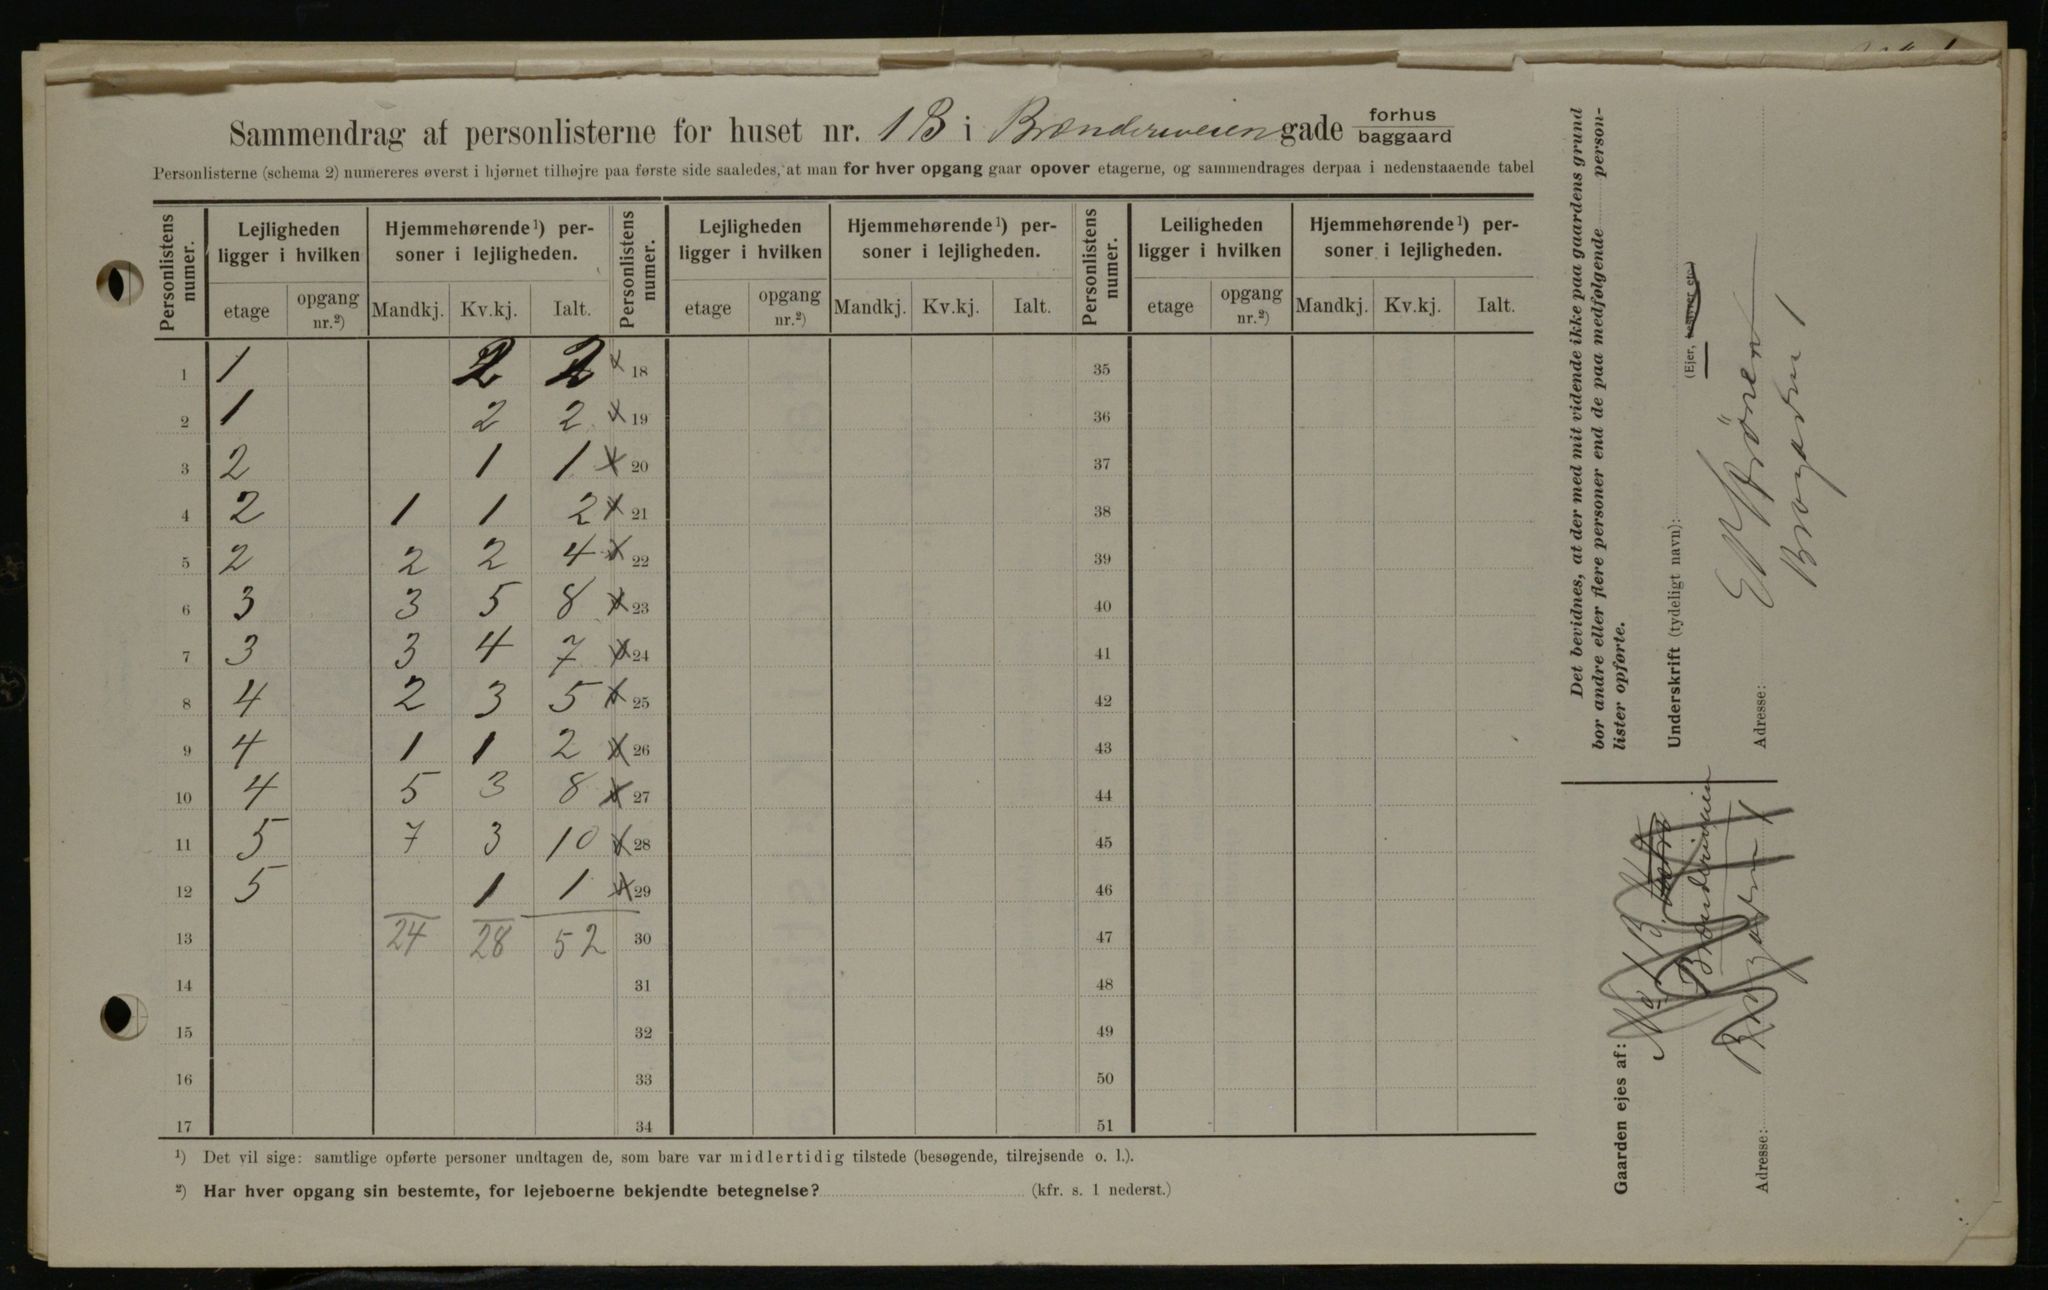 Sammendrag af personlisterne for huset nr. 1 B i Brænderiveien gade forhus baggaard
Personlisterne (schema 2) numereres øverst i hjørnet tilhøjre paa første side saaledes, at man for hver opgang gaar opover etagerne, og sammendrages derpaa i nedenstaaende tabel
Personlistens numer. Lejligheden ligger i hvilken Hjemmehørende ¹) personer i lejligheden. Personlistens numer. Lejligheden ligger i hvilken Hjemmehørende ¹) personer i lejligheden. Personlistens numer. Leiligheden ligger i hvilken Hjemmehørende ¹) personer i lejligheden.
etage opgang nr.²) Mandkj. Kv.kj. Ialt. etage opgang nr.²) Mandkj. Kv.kj. Ialt. etage opgang nr.²) Mandkj. Kv.kj. Ialt.
1 1 2 2 x 18 35
2 1 2 2 x 19 36
3 2 1 1 x 20 37
4 2 1 1 2 x 21 38
5 2 2 2 4 x 22 39
6 3 3 5 8 x 23 40
7 3 3 4 7 x 24 41
8 4 2 3 5 x 25 42
9 4 1 1 2 x 26 43
10 4 5 3 8 x 27 44
11 5 7 3 10 x 28 45
12 5 1 1 x 29 46
13 24 28 52 30 47
14 31 48
15 32 49
16 33 50
17 34 51
¹) Det vil sige: samtlige opførte personer undtagen de, som bare var midlertidig tilstede (besøgende, tilrejsende o. l.).
²) Har hver opgang sin bestemte, for lejeboerne bekjendte betegnelse? (kfr. s. 1 nederst.)
Det bevidnes, at der med mit vidende ikke paa gaardens grund
bor andre eller flere personer end de paa medfølgende person-
lister opførte.
Underskrift (tydeligt navn):
(Ejer, bestyrer etc.)
Adresse: Brogaden 1
Gaarden ejes af: No 1 B.
Brænderiveien
Adresse: Brogaden 1